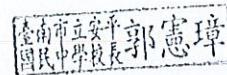 臺南市立安平
國民中學校長郭憲璋